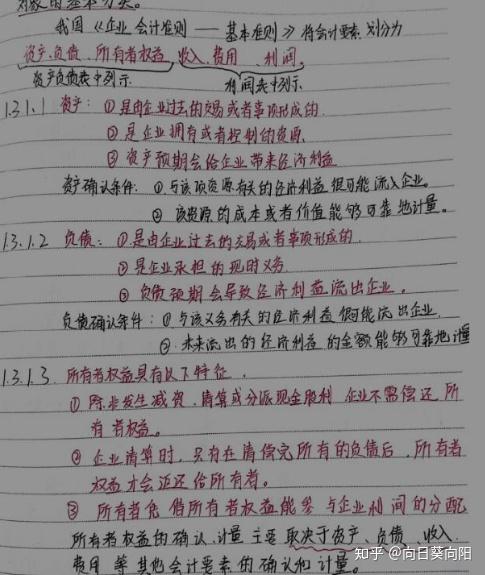 对象的基本分类。
我国《企业会计准则——基本准则》将会计要素划分为
资产、负债、所有者权益 收入、费用 利润。
资产负债表中列示 利润表中列示
1.3.1.1 资产：①是由企业过去的交易或者事项形成的.
②是企业拥有或者控制的资源.
③资产预期会给企业带来经济利益
资产确认条件：①与该项资源有关的经济利益很可能流入企业。
②该资源的成本或者价值能够可靠地计量。
1.3.1.2 负债：①是由企业过去的交易或者事项形成的.
②是企业承担的现时义务.
③负债预期会导致经济利益流出企业。
负债确认条件：①与该义务有关的经济利益很可能流出企业.
②未来流出的经济利益的金额能够可靠地计量
1.3.1.3. 所有者权益具有以下特征.
①除非发生减资、清算或分派现金股利 企业不需偿还所
有者权益。
②企业清算时，只有在清偿完所有的负债后，所有者
权益才会返还给所有者。
③所有者凭借所有者权益能参与企业利润的分配
所有者权益的确认、计量主要取决于资产、负债、收入、
费用等其他会计要素的确认和计量。
知乎 @向日葵向阳